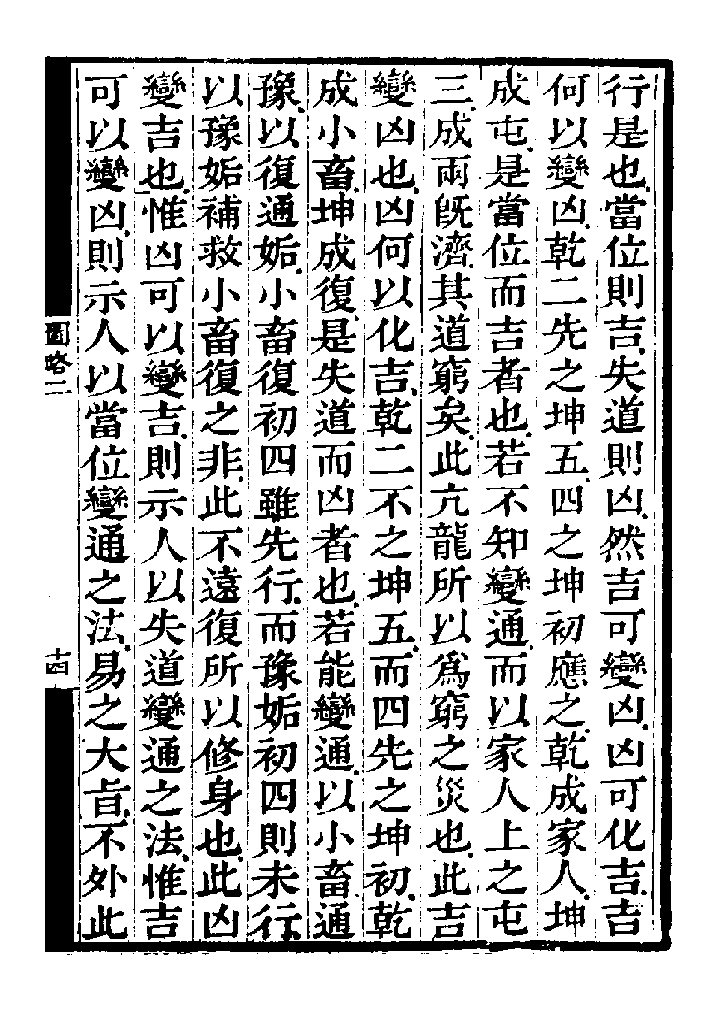 行是也當位則吉失道則凶然吉可變凶凶可化吉吉
何以變凶乾二先之坤五四之坤初應之乾成家人坤
成屯是當位而吉者也若不知變通而以家人上之屯
三成兩旣濟其道窮矣此亢龍所以爲窮之災也此吉
變凶也凶何以化吉乾二不之坤五而四先之坤初乾
成小畜坤成復是失道而凶者也若能變通以小畜通
豫以復通姤小畜復初四雖先行而豫姤初四則未行
以豫姤補救小畜復之非此不遠復所以修身也此凶
變吉也惟凶可以變吉則示人以失道變通之法惟吉
可以變凶則示人以當位變通之法易之大旨不外此
圖略二
十四